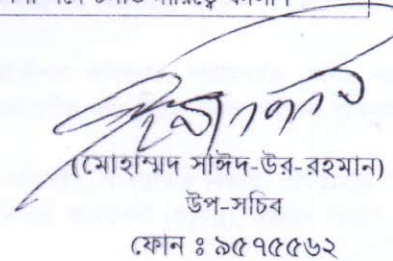 (মোহাম্মদ সাঈদ-উর-রহমান)
উপ-সচিব
ফোন ঃ ৯৫৭৫৫৬২